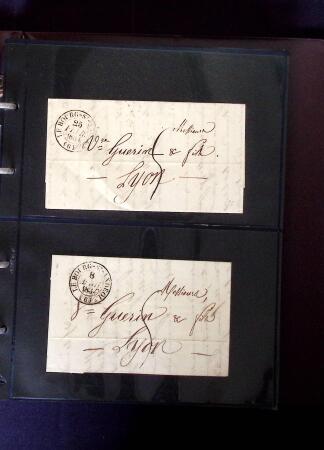 LE BOURG-ST-
25
(6)
Messieurs
Vve Guerin & fils.
Lyon
LE BOURG-ST-ANDEOL
8
(6)
Messieurs,
Vve Guerin & fils
Lyon